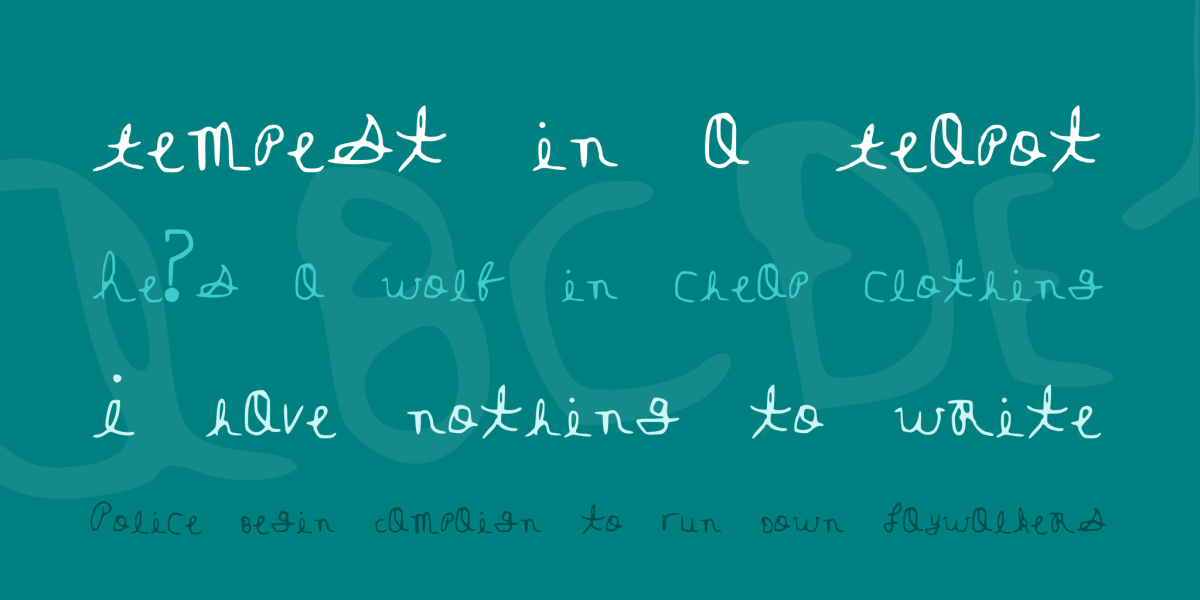 tempest in a teapot
he?s a wolf in cheap clothing
i have nothing to write
Police begin campaign to run down jaywalkers
ABCDE